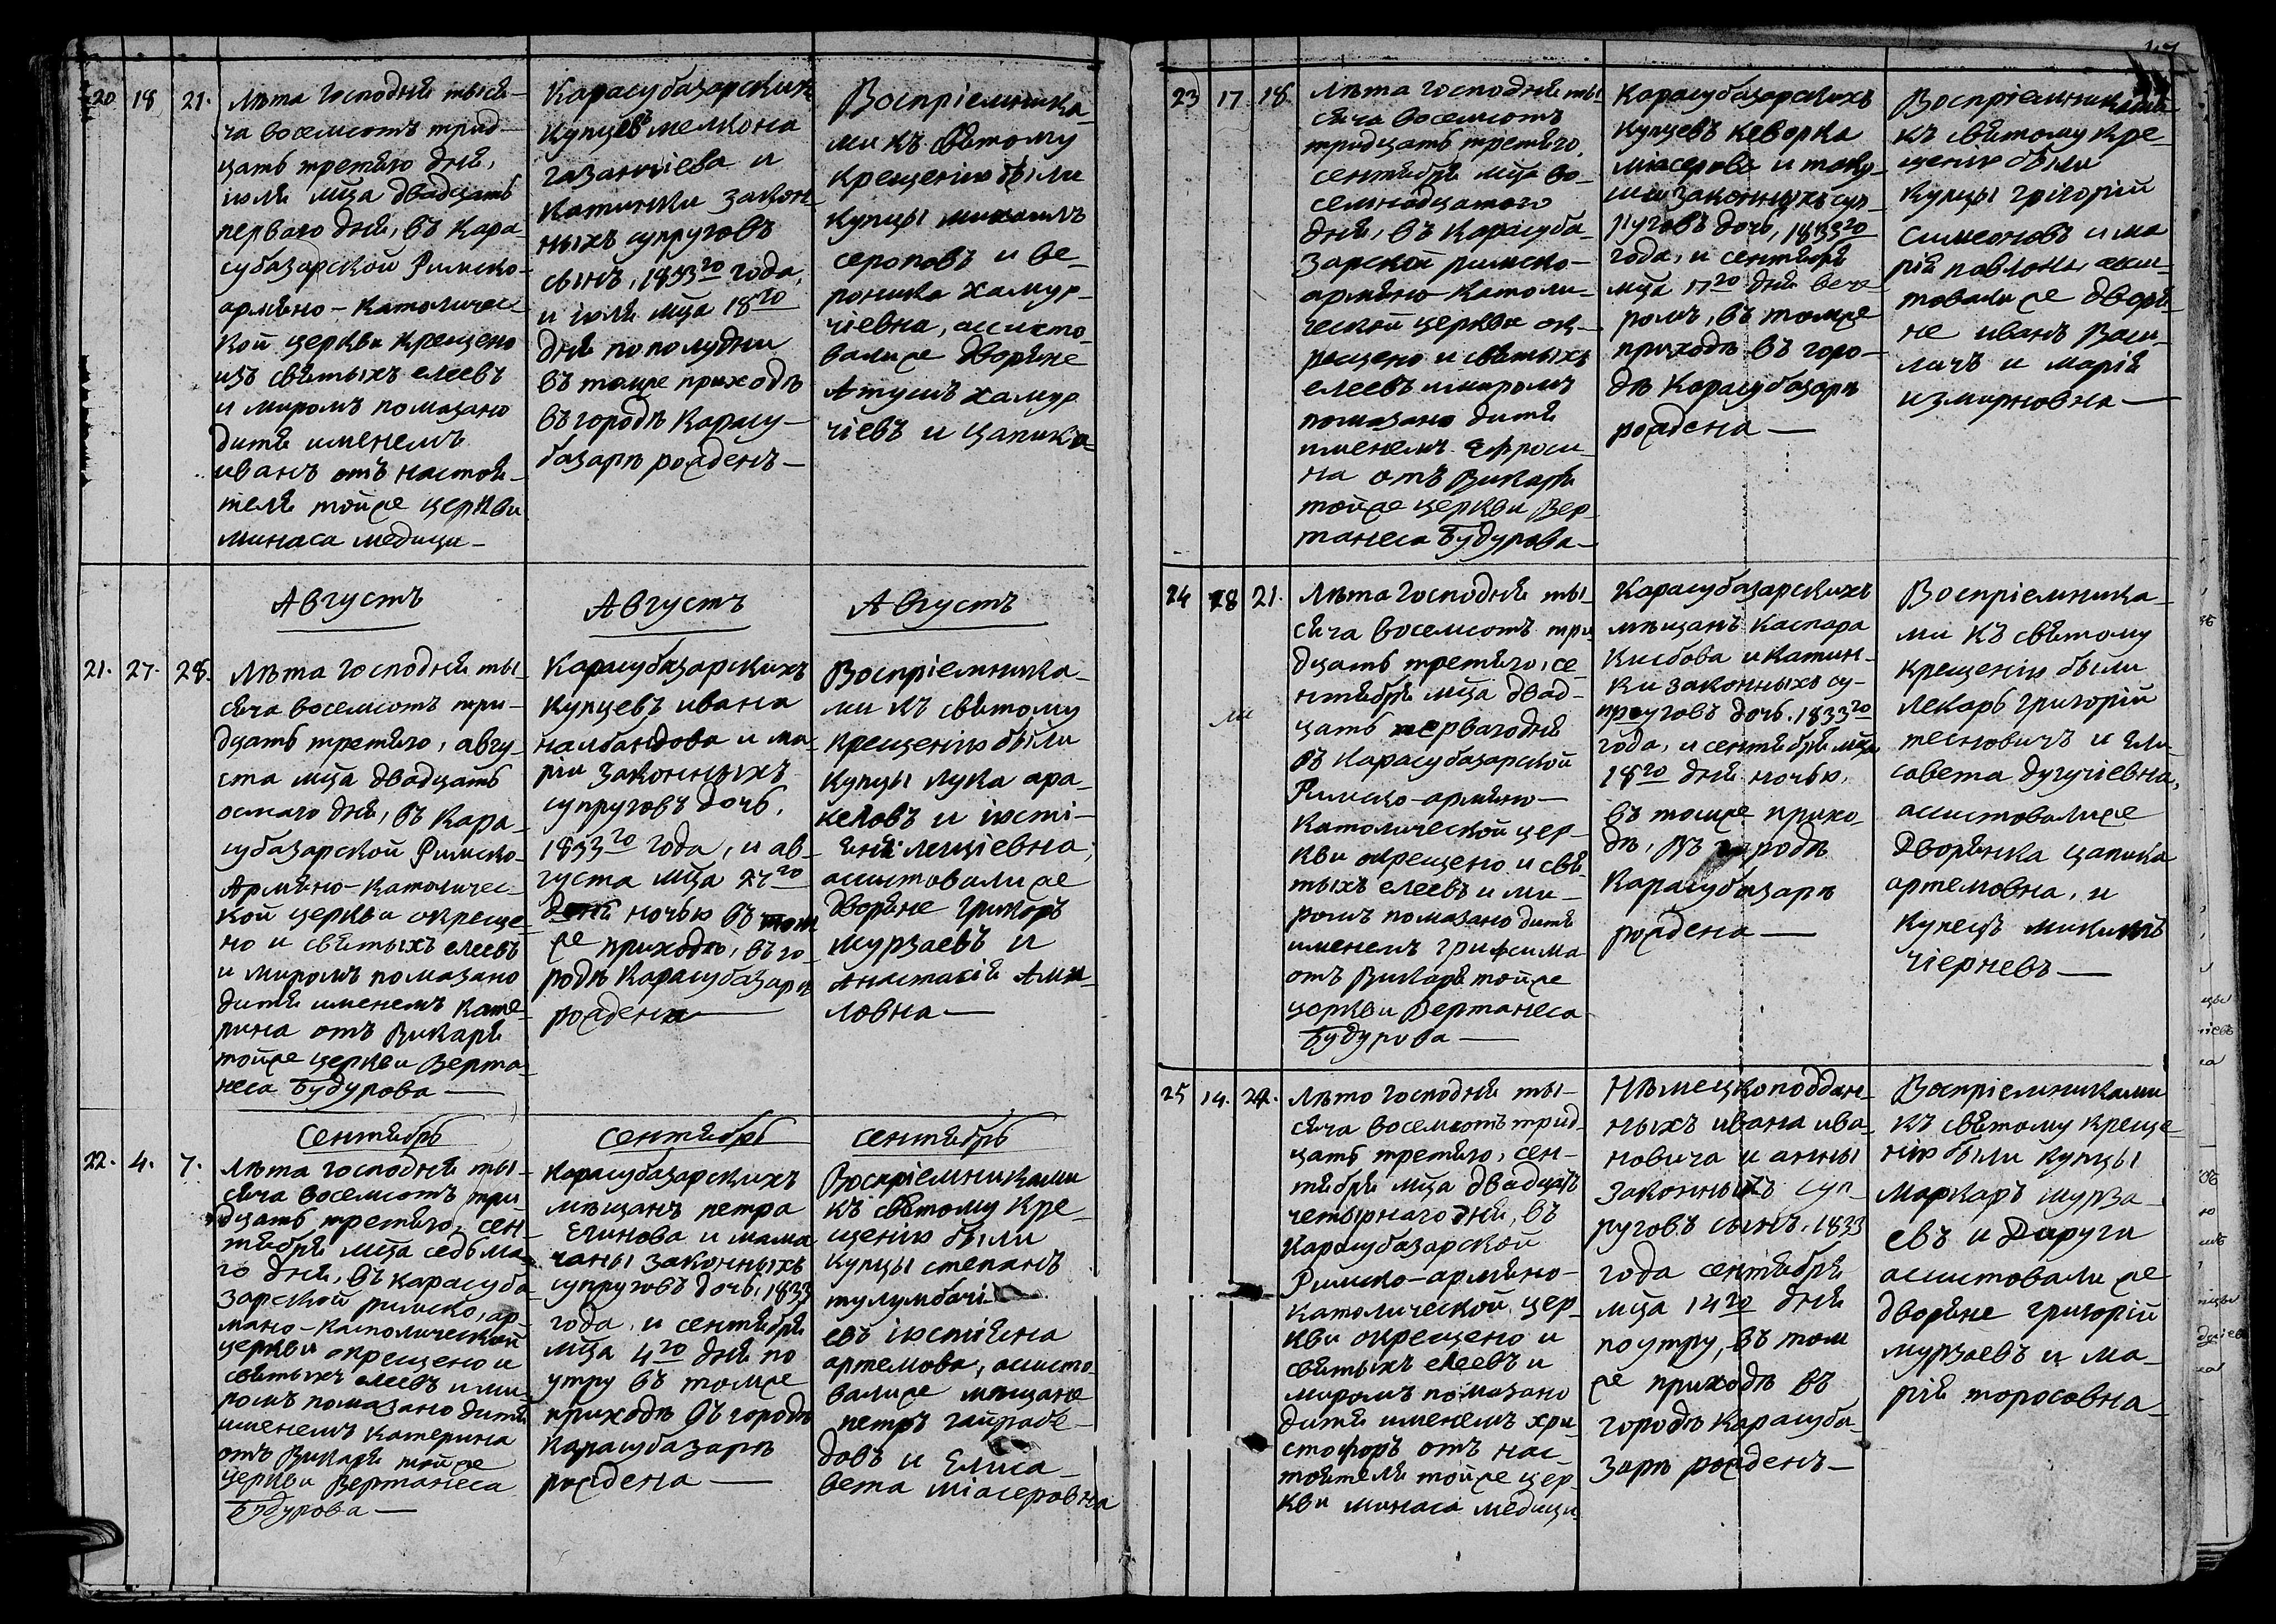 20 18 21.
Лѣта Господня тыся-
ча восемсотъ трид-
цать третяго дня,
іюля мца двадцать
перваго дня, въ Кара-
субазарской Римско-
армяно-Католичес-
кой церкви крещено
изъ святыхъ елеевъ
и миромъ помазано
дитя именемъ
иванъ отъ настоя-
теля тойже церкви
минаса медици-
Карасубазарскихъ
купцевъ мелкона
газанчіева и
катинки закон-
ныхъ супруговъ
сынъ, 1833го года,
и іюля мца 18го
дня пополудни
въ томже приходѣ
въ городѣ Карасу-
базарѣ рожденъ-
Воспріемника-
ми къ святому
крещенію были
купцы михаилъ
сероповъ и ве-
роника хамур-
чіевна, ассисто-
вали же дворяне
Атушъ хамур
чіевъ и цапика-
Августъ
Августъ
Августъ
21. 27. 28.
Лѣта Господня ты-
сяча восемсотъ три-
дцать третяго, авгу-
ста мца двадцать
осмаго дня, въ Кара-
субазарской Римско-
Армяно-Католичес-
кой церкви окреще-
но и святыхъ елеевъ
и миромъ помазано
дитя именемъ Кате-
рина отъ Викаря
тойже церкви Верта-
неса Будурова-
Карасубазарскихъ
Купцевъ ивана
налбандова и ма-
ріи законныхъ
супруговъ дочь,
1833го года, и ав-
густа мца 27го
дня ночью въ том
же приходѣ, въ го-
родѣ Карасубазарѣ
рождена-
Воспріемника-
ми къ святому
крещенію были
купцы лука ара-
келовъ и іюсті-
яна лициевна,
ассистовали же
дворяне григоръ
мурзаевъ и
Анастасія Ами-
ловна-
Сентябрь
Сентябрь
Сентябрь
22. 4. 7.
Лѣта господня ты-
сяча восемсотъ три-
дцать третяго, сен-
тября мца седьма-
го дня, въ карасуба
зарской римско, ар-
мяно-католической
церкви окрещено и
святыхъ елеевъ и ми-
ромъ помазано дитя
именемъ Катерина
отъ Викаря тойже
церкви Вертанеса
Будурова-
Карасубазарскихъ
мѣщанъ петра
Егинова и мама
чаны законныхъ
супруговъ дочь, 1833
года, и сентября
мца 4го дня по
утру въ томже
приходѣ въ городѣ
Карасубазарѣ
рождена-
Воспріемниками
къ святому кре-
щенію были
купцы степанъ
тулумбачі-
евъ іюстіяна
артемова, ассисто-
вали же мѣщане
петръ гайрабе-
довъ и Елиса-
вета міасеровна
23 17 18
Лѣта господня ты-
сяча восемсотъ
тридцать третяго,
сентября мца во-
семнадцатого
дня, въ Карасуба-
зарской римско-
армяно-католи-
ческой церкви ок-
рещено и святыхъ
елеевъ и миромъ
помазано дитя
именемъ Ефроси-
на отъ Викаря
тойже церкви Вер-
танеса Будурова-
Карасубазарскихъ
купцевъ кеворка
міасерова и таку-
ши законныхъ суп-
руговъ дочь, 1833го
года, и сентября
мца 17го дня вече
ромъ, въ томже
приходѣ въ горо-
дѣ Карасубазарѣ
рождена-
Воспріемниками
къ святому кре-
щенію были
купцы григорій
симеоновъ и ма
рія павлова, асси-
товали же дворя-
не иванъ Васи-
личъ и марія
измирновна-
24 18 21.
Лѣта Господня ты-
сяча восемсотъ три
дцать третяго, се-
нтября мца двад-
цать перваго дня
въ Карасубазарской
Римско-армяно-
Католической цер-
кви окрещено и свя-
тыхъ елеевъ и ми-
ромъ помазано дитя
именемъ грифсима
отъ Викаря тойже
церкви Вертанеса
Будурова-
Карасубазарскихъ
мѣщанъ каспара
Кисбова и катин-
ки законныхъ су-
пруговъ дочь. 1833го
года, и сентября мца
18го дня ночью,
въ томже прихо-
дѣ, въ городѣ
Карасубазарѣ
рождена-
Воспріемника-
ми къ святому
крещенію были
лекарь григорій
теиновичъ и Ели-
савета дугучіевна,
ассистовали же
дворянка цапика
артемовна, и
купецъ микитъ
чіерневъ-
25 14. 24.
Лѣто господня ты-
сяча восемсотъ трид-
цать третяго, сен-
тября мца двадцать
четырнаго дня, въ
Карасубазарской
Римско-армяно-
католической, цер-
кви окрещено и
святыхъ елеевъ и
миромъ помазано
дитя именемъ хри
стофоръ отъ нас-
тоятеля тойже цер-
кви минаса медици
Нѣмецкоподдан-
ныхъ ивана ива-
новича и анны
законныхъ суп-
руговъ сынъ, 1833
года сентября
мца 14го дня
поутру, въ том
же приходѣ въ
городѣ Карасуба-
зарѣ рожденъ-
Воспріемниками
къ святому креще-
нію были купцы
маркаръ мурза-
евъ и Даруги
ассистовали же
дворяне григорій
мурзаевъ и ма-
рія торосовна-